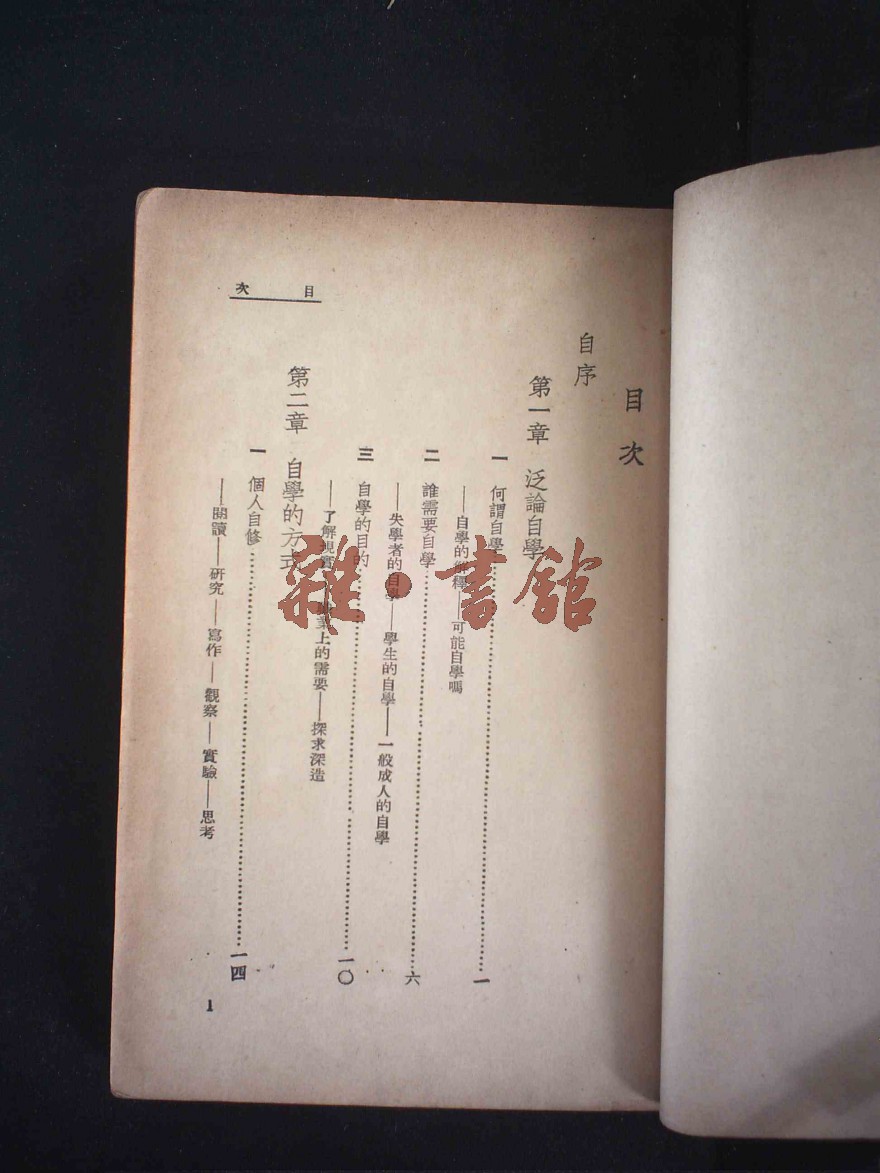 目次
自序
第一章 泛論自學
一 何謂自學……一
——自學的解釋——可能自學嗎
二 誰需要自學……六
——失學者的自學——學生的自學——一般成人的自學
三 自學的目的……一〇
——了解現實——業上的需要——探求深造
第二章 自學的方式
一 個人自修……一四
——閱讀——研究——寫作——觀察——實驗——思考
目次
1
雜·書館